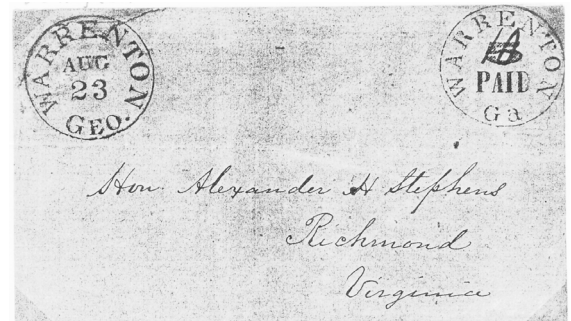 WARRENTON
AUG
23
GEO.
WARRENTON
PAID
Ga
Hon. Alexander H Stephens
Richmond
Virginia